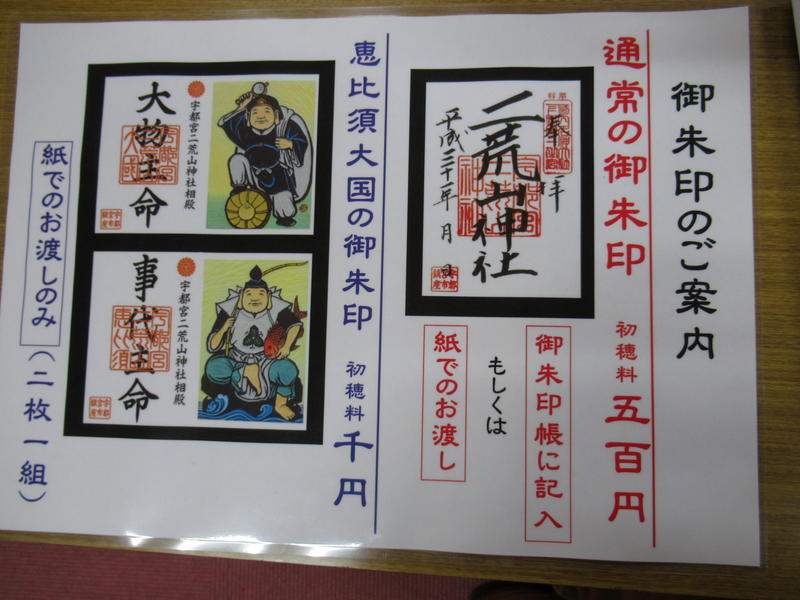 御朱印のご案内
通常の御朱印
初穂料 五百円
奉拝
二荒山神社
平成三十一年 月 日
宇都宮市鎮座
御朱印帳に記入
もしくは
紙でのお渡し
恵比須大国の御朱印
初穂料 千円
宇都宮二荒山神社相殿
大物主命
宇都宮市鎮座
宇都宮二荒山神社相殿
事代主命
宇都宮市鎮座
紙でのお渡しのみ(二枚一組)